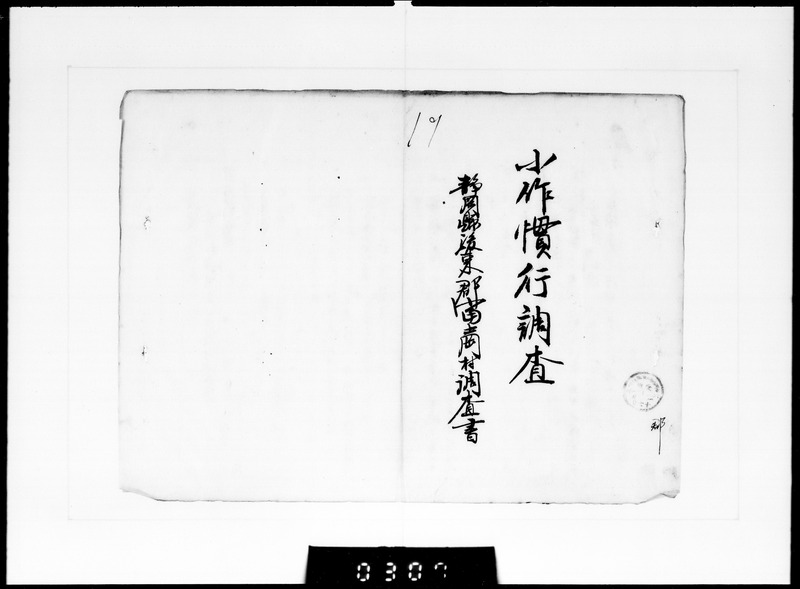 小作慣行調査
静岡縣駿東郡富岡村調査書
19
郡
0307